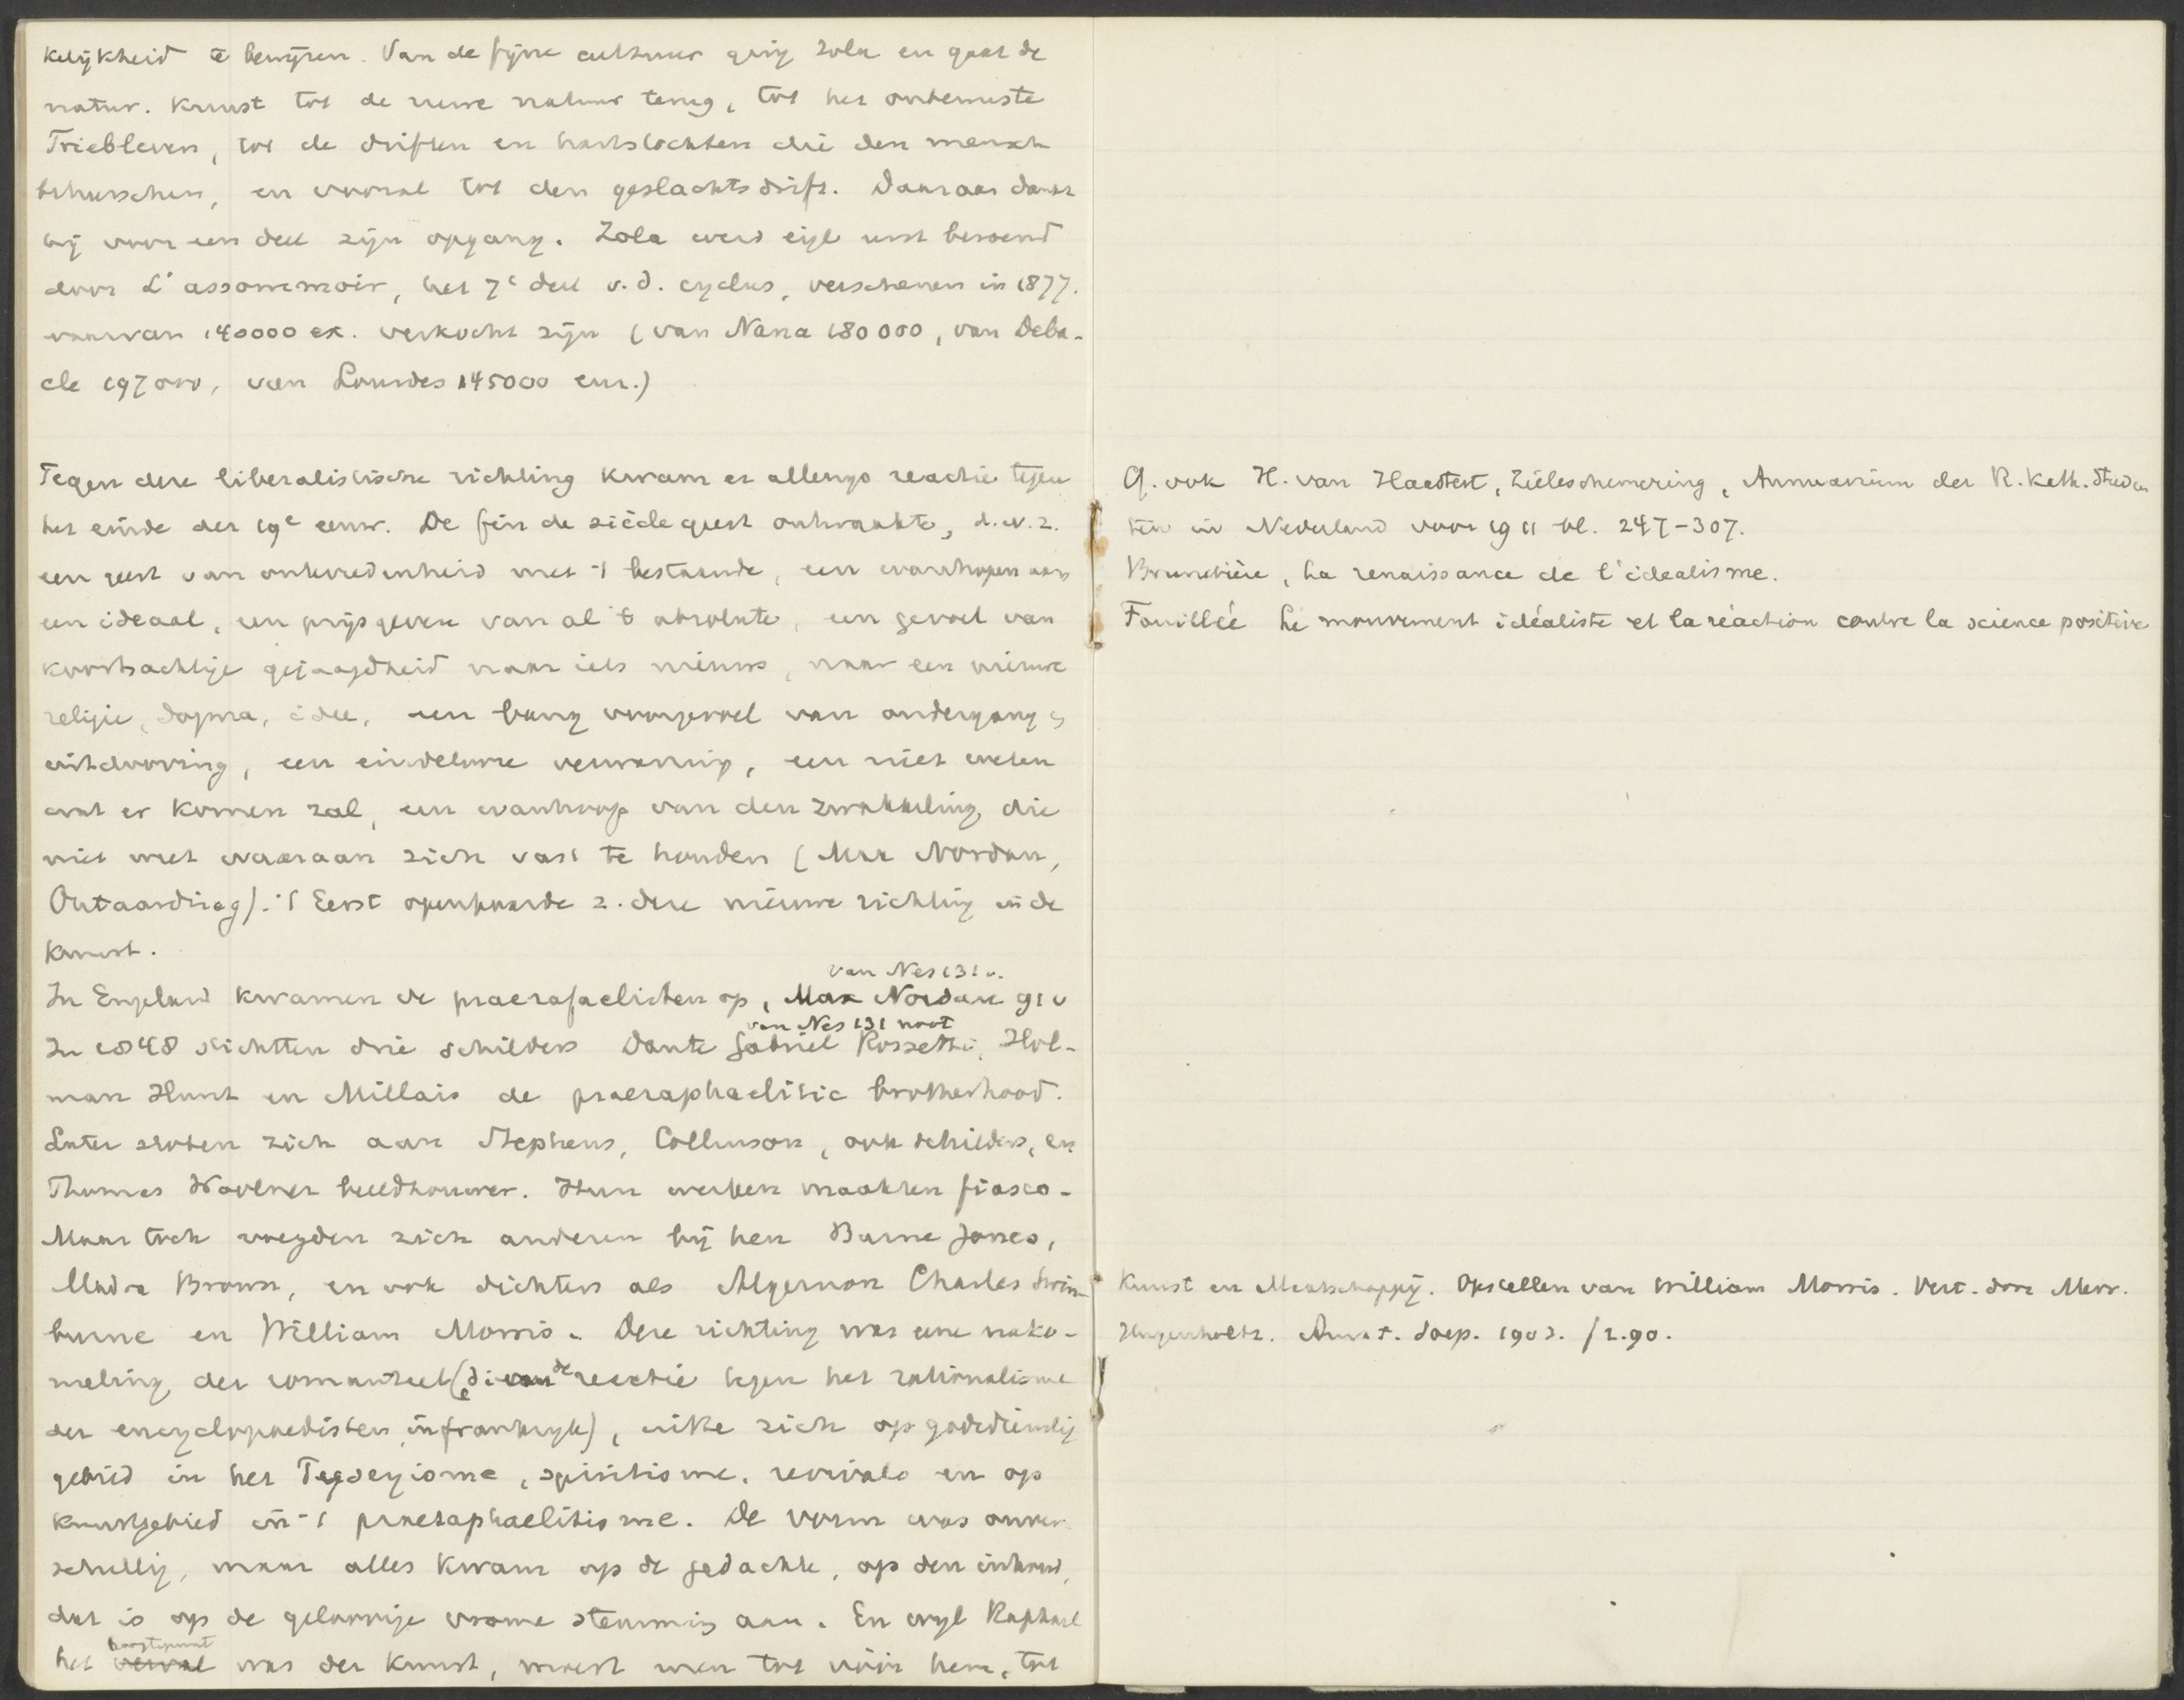 kelijkheid te bewijzen. Van de fijne cultuur ging Zola en gaat de
natur. kunst tot de ruwe natuur terug, tot het onbewuste
Triebleven, tot de driften en hartstochten die den mensch
beheerschen, en vooral tot den geslachtsdrift. Daaraan dankt
hij voor een deel zijn opgang. Zola werd eigl eerst beroemd
door L'assommoir, het 7e deel v.d. cyclus, verschenen in 1877.
waarvan 140000 ex. verkocht zijn (van Nana 180000, van Deba-
cle 197000, van Lourdes 145000 enz.)
Tegen deze liberalistische richting kwam er allengs reactie tegen
het einde der 19e eeuw. De fin de siècle geest ontwaakte, d.w.z.
een geest van ontevredenheid met 't bestaande, een wanhopen aan
een ideaal, een prijsgeven van al 't absolute, een gevoel van
koortsachtige gejaagdheid naar iets nieuws, naar een nieuwe
religie, dogma, idee, een bang voorgevoel van ondergang &
uitdooving, een eindelooze verwarring, een niet weten
wat er komen zal, een wanhoop van den zwakkeling, die
niet weet waaraan zich vast te houden (Max Nordau,
Ontaarding). 't Eerst openbaarde z. deze nieuwe richting in de
kunst.
van Nes 131 v.
In Engeland kwamen de praerafaelisten op, Max Nordau 91 v
van Nes 131 noot
In 1848 stichtten drie schilders Dante Gabriel Rossetti, Hol-
man Hunt en Millais de praeraphaelitic brotherhood.
Later sloten zich aan Stephens, Collinson, ook schilders, en
Thomas Woolner beeldhouwer. Hun werken maakten fiasco.
Maar toch voegden zich anderen bij hen Burne Jones,
Madox Brown, en ook dichters als Algernon Charles Swin-
burne en William Morris. Deze richting was eene nako-
meling der romantiek (die de reactie tegen het rationalisme
der encyclopaedisten in frankrijk), uitte zich op godsdienstig
gebied in het Puseyisme, spiritisme, revivals en op
kunstgebied in 't praeraphaelitisme. De vorm was onver-
schillig, maar alles kwam op de gedachte, op den inhoud,
dat is op de geloovige vrome stemming aan. En wijl Raphael
hoogtepunt
het verval was der kunst, moest men tot vóór hem, tot
Cf. ook H. van Haastert, Zieleschemering, Annuarium der R. Kath. Studen
ten in Nederland voor 1911 bl. 247-307.
Brunetière, La renaissance de l'idealisme.
Fouillée Le mouvement idéaliste et la réaction contre la science positive
Kunst en Maatschappij. Opstellen van William Morris. Vert. door Mevr.
Hugenholtz. Amst. Soep. 1903. f 2.90.